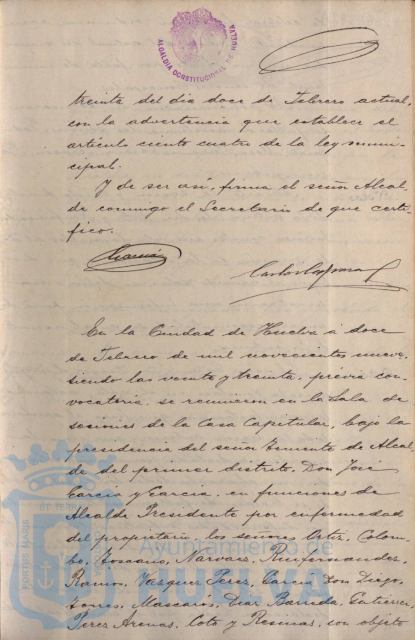 ALCALDIA CONSTITUCIONAL DE HUELVA
treinta del dia doce de Febrero actual,
con la advertencia que establece el
artículo ciento cuatro de la ley muni-
cipal.
Y de ser así, firma el señor Alcal-
de conmigo el Secretario de que certi-
fico.
En la Ciudad de Huelva á doce
de Febrero de mil novecientos nueve,
siendo las veinte y treinta, prévia con-
vocatoria, se reunieron en la Sala de
sesiones de la Casa Capitular, bajo la
presidencia del señor Teniente de Alcal-
de del primer distrito, Don José
García y García, en funciones de
Alcalde Presidente por enfermedad
del propietario, los señores Ortiz, Colom-
bo, Narvaez,
Ramos, Vazquez Perez, García Don Diego,
Torres, Mascarós, Diaz Barreda, Gutierrez,
Perez Arenas, Coto y son objeto
PORTUS MARIS
Ayuntamiento de
HUELVA